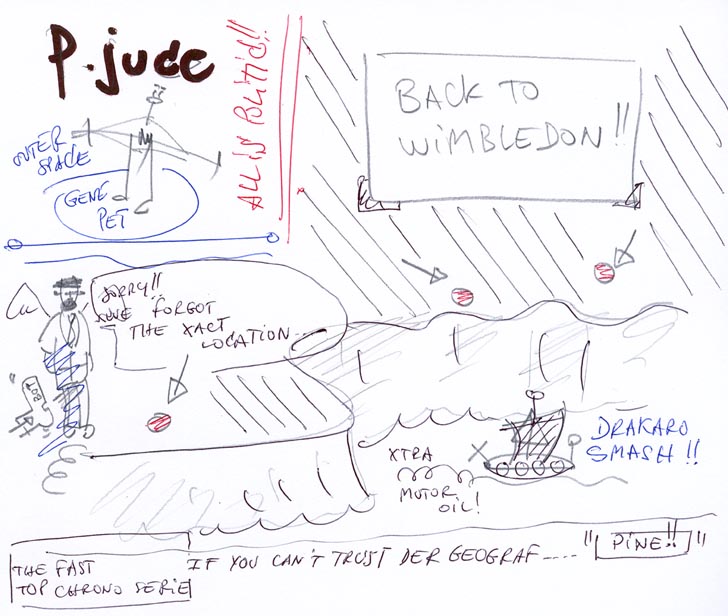 P.jude
ALL IS POLITI'D!!
OUTER
SPACE
GENE
PET
BACK TO
WIMBLEDON!!
SORRY!!
FORGOT
THE XACT
LOCATION...
BOT
XTRA
MOTOR
OIL!
DRAKARO
SMASH!!
THE FAST
TOP CHRONO SERIE
IF YOU CAN'T TRUST DER GEOGRAF.... "PINE!!"